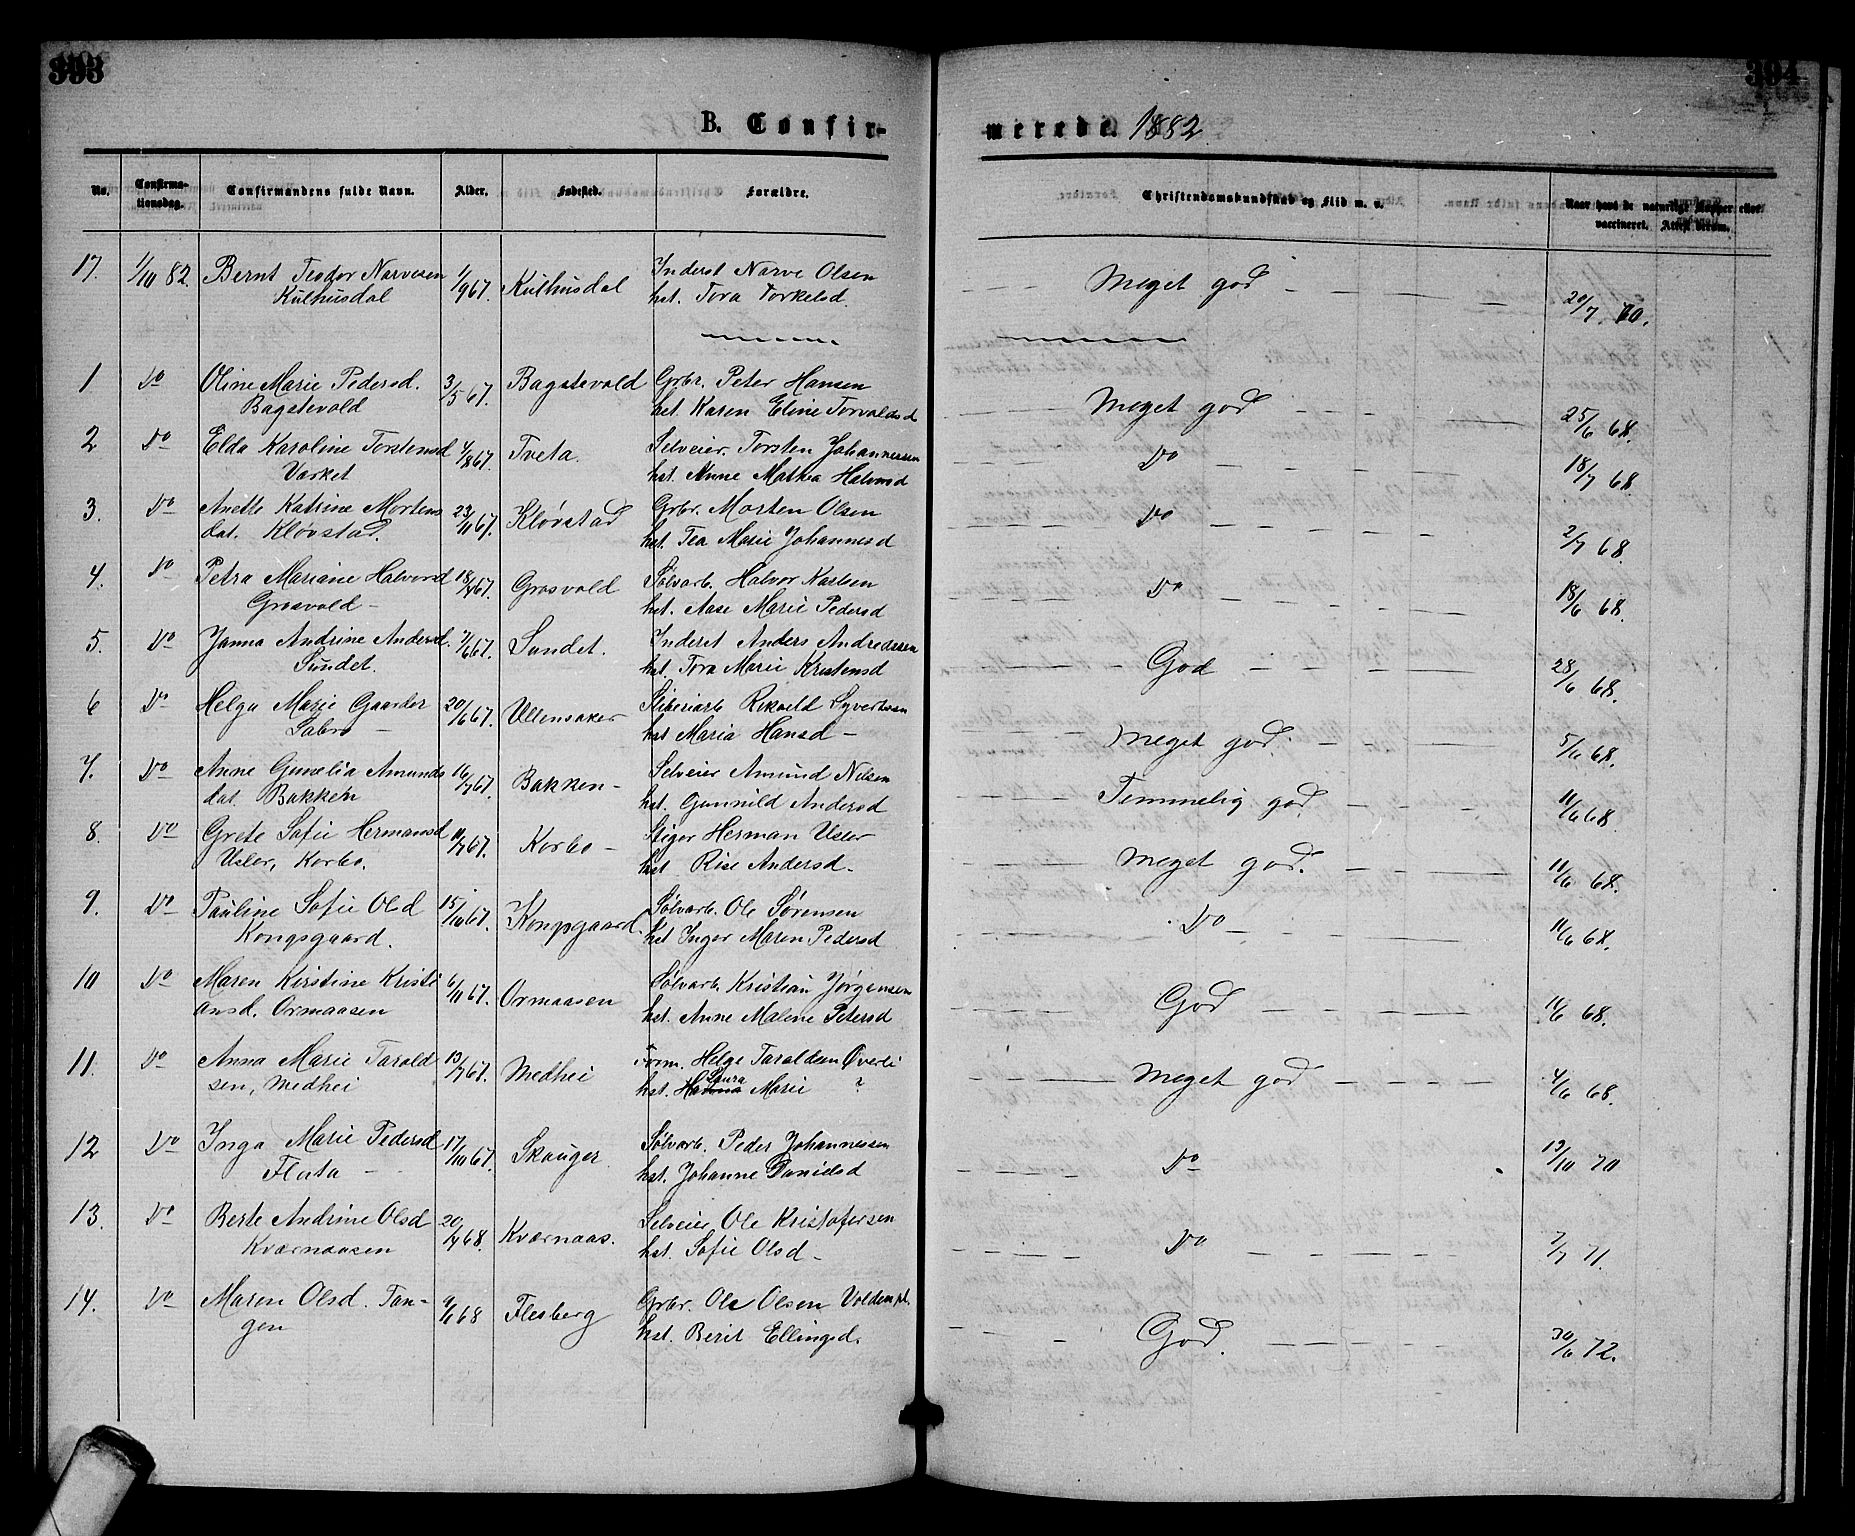 393
394
B. Confir- merede. 1882
No. Confirma-tionsdag. Confirmandens fulde Navn. Alder. Fødested. Forældre. Christendomskundskab og Flid m. v. Naar havt de naturlige Kopper eller vaccineret. Attest derom.
17. 1/10 82. Bernt Teodor Narvesen 1/9 67. Kulhusdal Inderst Narve Olsen Meget god 20/7 70.
Kulhusdal hst. Tora Torkelsd.
1 Do Oline Marie Pedersd. 3/5 67. Bagstevold Grbr. Peter Hansen Meget god 25/6 68.
Bagstevold hst. Karen Eline Torvaldsd
2 Do Elda Karoline Torstensd 67. Tveta. Selveier. Torsten Johannessen Do 18/7 68.
Varket hst. Anne Mathea Halvorsd
3. Do Anette Katrine Mortens 23/11 67. Kløvstad Grbr. Morten Olsen Do 2/7 68.
dat. Kløvstad. hst. Tea Marie Johannesd
4. Do Petra Mariane Halvorsd 67. Grosvold Sølvarb. Halvor Karlsen Do 18/6 68.
Grosvold hst. Aase Marie Pedersd
5. Do Janna Andrine Andersd. 67. Sundet. Inderst Anders Andreassen God 28/6 68.
Sundet. hst. Tora Marie Kristensd
6 Do Helga Marie Gaarder 20/6 67. Ullensaker Rikold Syvertsen Meget god. 5/6 68.
Sabro hst Maria Hansd
7. Do Anne Gunelia Amunds 16/7 67. Bakken Selveier Amund Nilsen Temmelig god. 11/6 68.
dat. Bakken hst. Gunnild Andersd
8. Do Grete Sofie Hermansd 67. Korbo Stiger Herman Usler Meget god. 11/6 68.
Usler, Korbo. hst Rise Andersd.
9. Do Pauline Sofie Olsd 15/10 67. Kongsgaard. Sølvarb. Ole Sørensen Do 11/6 68.
Kongsgaard. hst Inger Maren Pedersd
10 Do Maren Kirstine Kristi 6/11 67. Ormaasen Sølvarb. Kristian Jørgensen God 68.
ansd. Ormaasen hst. Anne Malene Petersd
11. Do Anna Marie Tarald 67. Medhei Form. Helge Taraldsen Øverli Meget god 4/6 68.
sen, Medhei hst. Hanna Laura Marie ?
12 Do Inga Marie Pedersd 17/10 67. Skauger Sølvarb. Peder Johannessen Do 13/10 70
Flata hst. Johanne Danielsd
13. Do Berte Andrine Olsd 68. Kværnaas. Selveier Ole Kristofersen Do 7/7 71.
Kværnaasen hst. Sofie Olsd
14. Do Maren Olsd. Tan- 68 Flesberg Grbr. Ole Olsen Volden pl. God. 30/6 72.
gen hst. Berit Ellingsd.